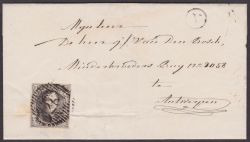 Mynheer
De heer J. Van den Bosch,
Minderbroeders Ruy N° 2058
te
Antwerpen